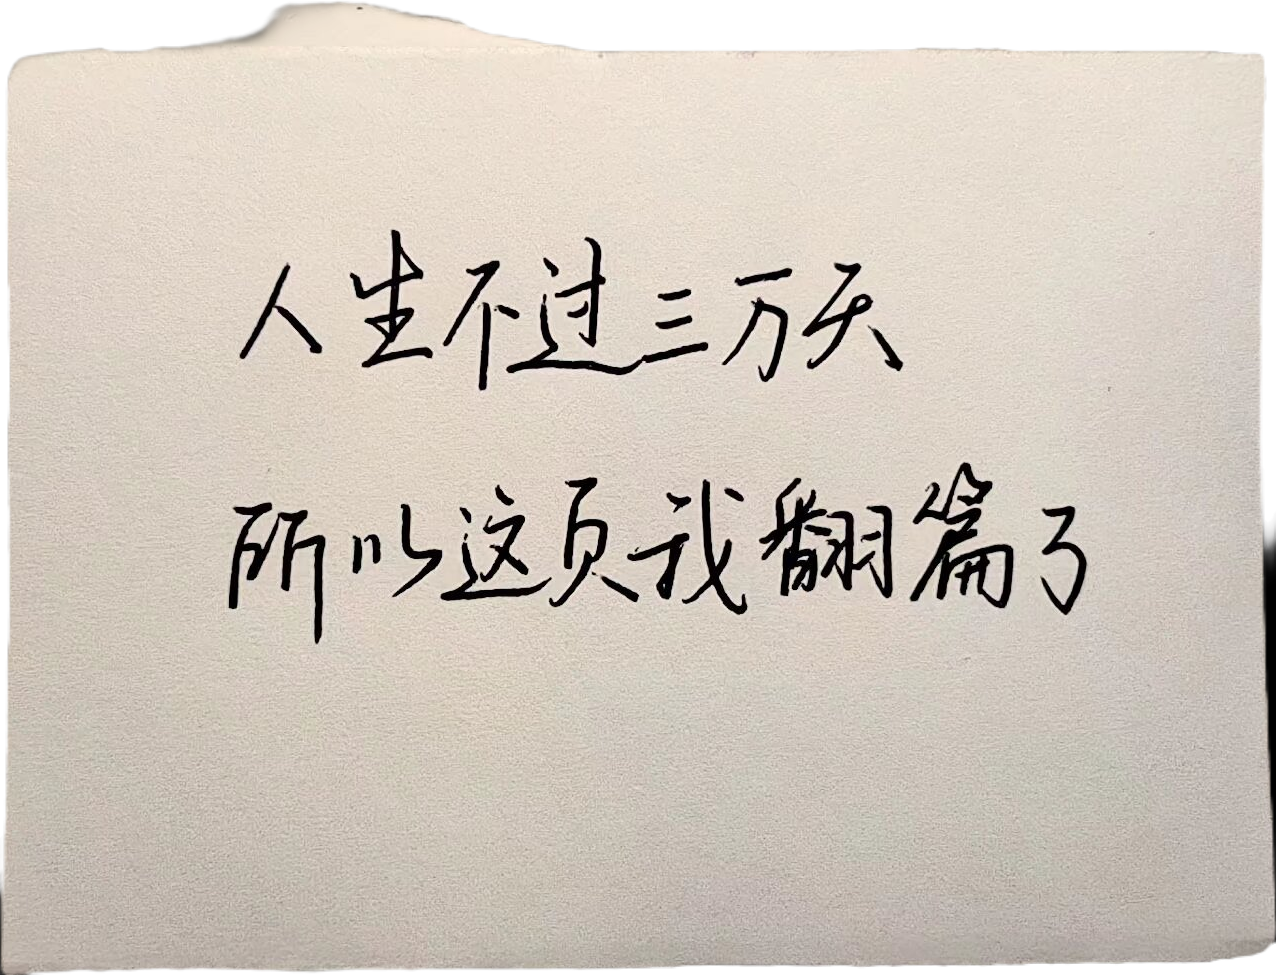 人生不过三万天
所以这页我翻篇了